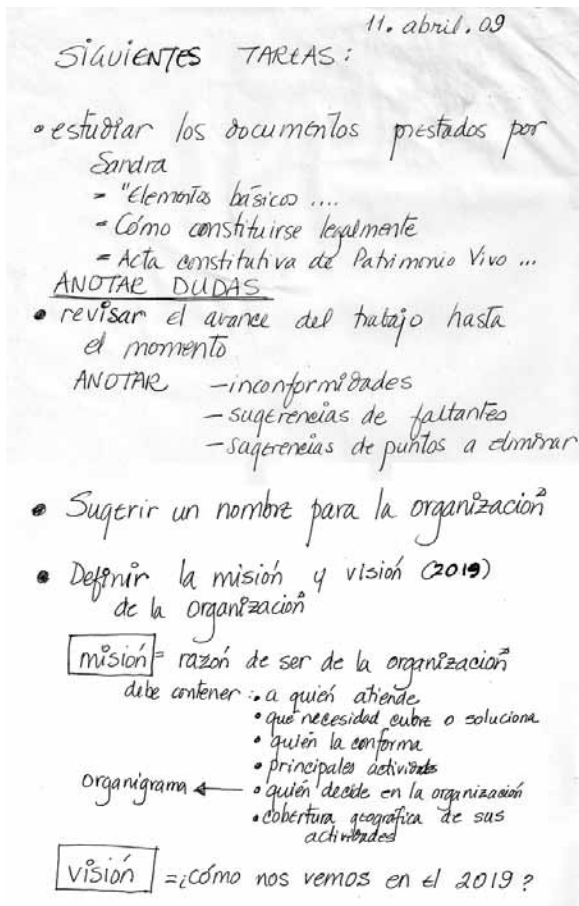 11. abril. 09
SIGUIENTES TAREAS:
• estudiar los documentos prestados por
Sandra
- "Elementos básicos ....
- Cómo constituirse legalmente
- Acta constitutiva de Patrimonio Vivo ...
ANOTAR DUDAS
• revisar el avance del trabajo hasta
el momento
ANOTAR - inconformidades
- sugerencias de faltantes
- sugerencias de puntos a eliminar
• Sugerir un nombre para la organización
• Definir la misión y visión (2019)
de la organización
misión = razón de ser de la organización
debe contener: • a quién atiende
• qué necesidad cubre o soluciona
• quién la conforma
• principales actividades
organigrama ← • quién decide en la organización
• cobertura geográfica de sus
actividades
visión = ¿cómo nos vemos en el 2019?